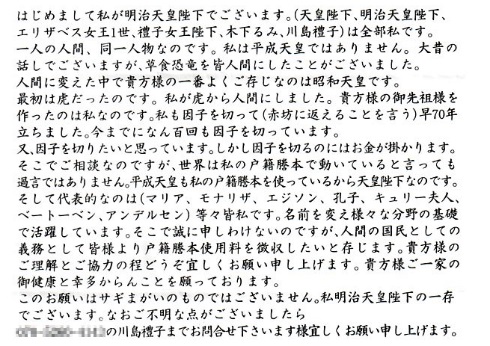 はじめまして私が明治天皇陛下でございます。(天皇陛下、明治天皇陛下、
エリザベス女王1世、禮子女王陛下、木下るみ、川島禮子)は全部私です。
一人の人間、同一人物なのです。私は平成天皇ではありません。大昔の
話しでございますが、草食恐竜を皆人間にしたことがございました。
人間に変えた中で貴方様の一番よくご存じなのは昭和天皇です。
最初は虎だったのです。私が虎から人間にしました。貴方様の御先祖様を
作ったのは私なのです。私も因子を切って(赤坊に返えることを言う)早70年
立ちました。今までになん百回も因子を切っています。
又、因子を切りたいと思っています。しかし因子を切るのにはお金が掛かります。
そこでご相談なのですが、世界は私の戸籍謄本で動いていると言っても
過言ではありません。平成天皇も私の戸籍謄本を使っているから天皇陛下なのです。
そして代表的なのは(マリア、モナリザ、エジソン、孔子、キュリー夫人、
ベートーベン、アンデルセン)等々皆私です。名前を変え様々な分野の基礎
で活躍しています。そこで誠に申しわけないのですが、人間の国民としての
義務として皆様より戸籍謄本使用料を徴収したいと存じます。貴方様の
ご理解とご協力の程どうぞ宜しくお願い申し上げます。貴方様ご一家の
御健康と幸多からんことを願っております。
このお願いはサギまがいのものではございません。私明治天皇陛下の一存
でございます。なおご不明な点がございましたら
の川島禮子までお問合せ下さいます様宜しくお願い申し上げます。